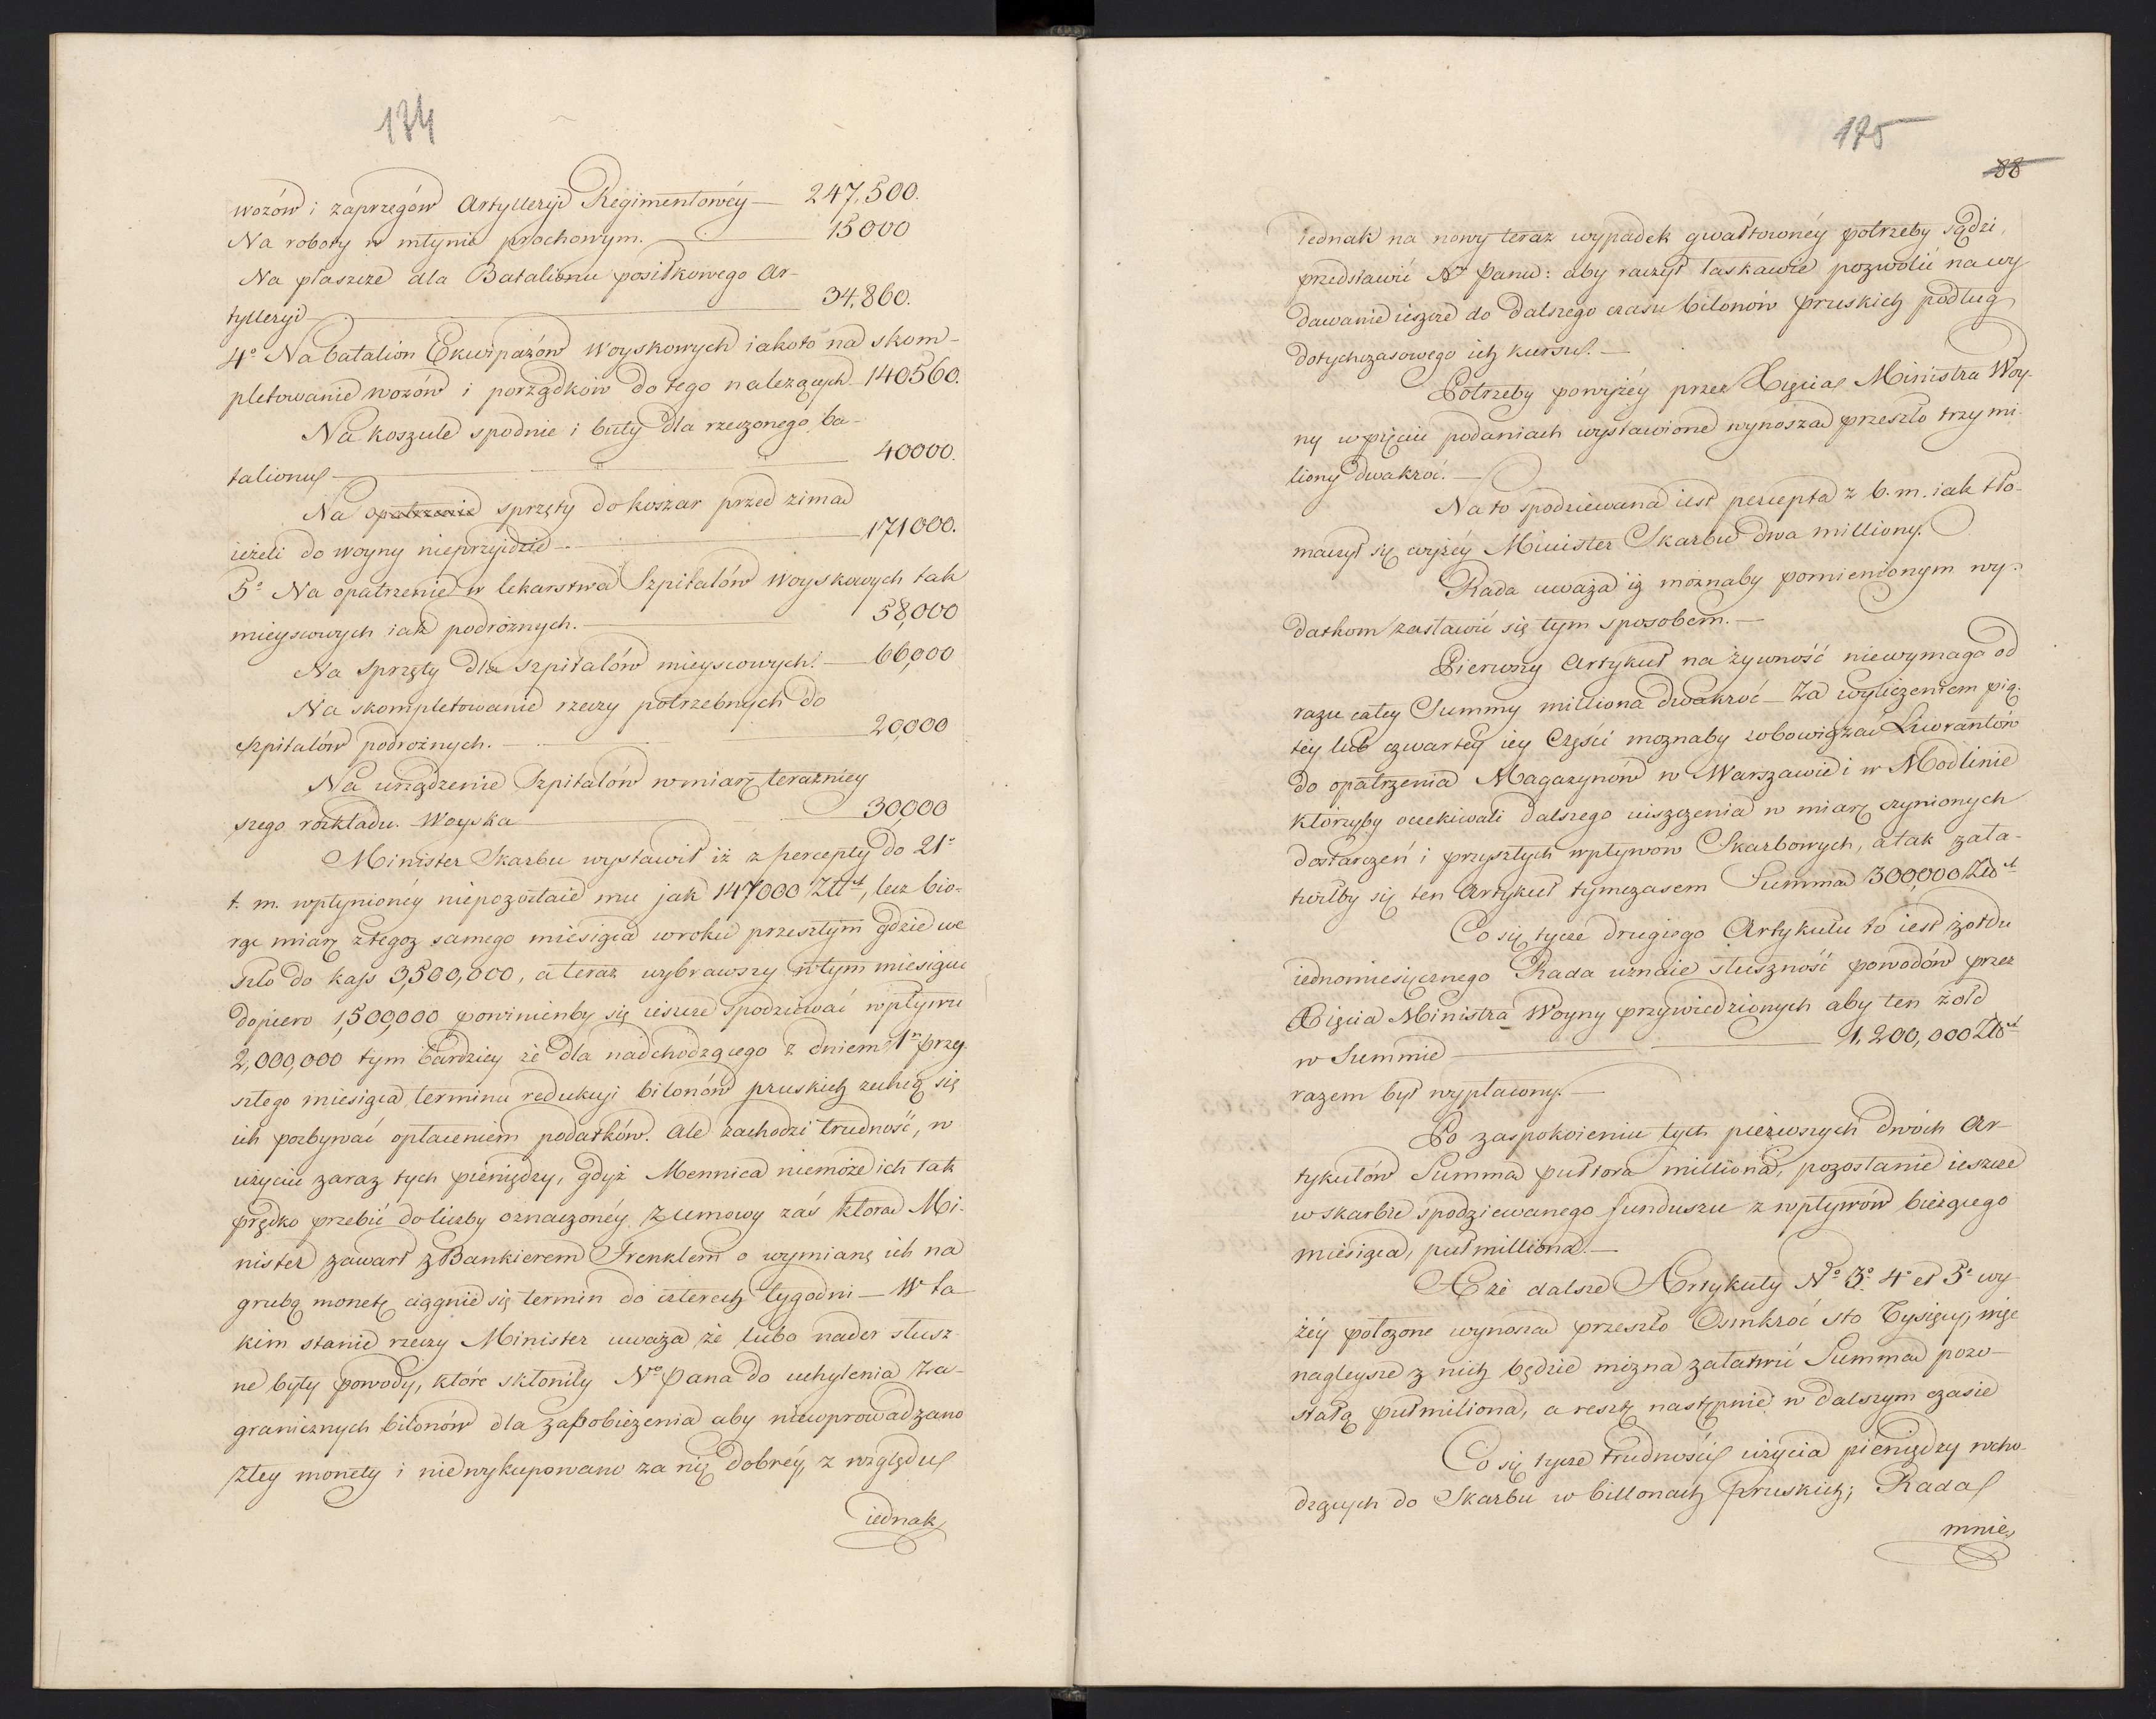 174
wozów i zaprzęgów Artylleryi Regimentowéy — 247,500.
Na roboty w młynie prochowym. — 15000
Na płaszcze dla Batalionu posiłkowego Ar-
tylleryi — 34,860.
4º Na batalion Ekwipażów Woyskowych iakoto na skom-
pletowanie wozów i porządków do tego należących. 140560.
Na koszule spodnie i buty dla rzeczonego ba-
talionu — 40000.
Na opatrzenie sprzęty do koszar przed zimą
ieżeli do woyny nieprzyidzie — 171000.
5º Na opatrzenie w lekarstwa Szpitalów Woyskowych tak
mieyscowych iak podróżnych. — 58,000
Na Sprzęty dla szpitalów mieyscowych. — 66,000
Na skompletowanie rzeczy potrzebnych do
szpitalów podróżnych. — 20,000
Na urządzenie Szpitalów w miarę teraźniey
szego rozkładu Woyska — 30,000
Minister Skarbu wystawił iż z percepty do 21º
t. m. wpłynionéy niepozostaie mu jak 147000 Złłt, lecz bio-
rąc miarę z tegoż samego miesiąca w roku przeszłym gdzie we
szło do kass 3,500,000, a teraz wybrawszy w tym miesiącu
dopiero 1,500,000 powinienby się ieszcze spodziewać wpływu
2,000,000 tym bardziey że dla nadchodzącego z dniem 1m przy
szłego miesiąca terminu redukcyi bilonów pruskich zechcą się
ich pozbywać opłaceniem podatków. Ale zachodzi trudność, w
użyciu zaraz tych pieniędzy, gdyż Mennica niemoże ich tak
prędko przebić do liczby oznaczonéy. Z umowy zaś którą Mi-
nister zawarł z Bankierem Frenklem o wymianę ich na
grubą monetę ciągnie się termin do czterech tygodni — W ta-
kim stanie rzeczy Minister uważa że lubo nader słusz-
ne były powody, które skłoniły No Pana do uchylenia Za-
granicznych bilonów dla zapobieżenia aby niewprowadzano
złey monety i niewykupowano za nię dobréy, z względu
iednak
175
88
iednak na nowy teraz wypadek gwałtownéy potrzeby sądzi
przedstawić Nu Panu: aby raczył łaskawie pozwolić na wy
dawanie ieszcze do dalszego czasu bilonów pruskich podług
dotychczasowego ich kursu. —
Potrzeby powyżéy przez Xięcia Ministra Woy-
ny w pięciu podaniach wystawione wynoszą przeszło trzy mi-
liony dwakroć. —
Na to spodziewana iest percepta z b. m. iak tło-
maczył się wyżéy Minister Skarbu dwa milliony.
Rada uważa iż możnaby pomienionym wy-
datkom zastawić się tym sposobem. —
Pierwszy Artykuł na żywność niewymaga od
razu całey Summy milliona dwakroć — Za wyliczeniem pią-
téy lub czwartéy iey Części możnaby zobowiązać Liwerantów
do opatrzenia Magazynów w Warszawie i w Modlinie
którzyby oczekiwali dalszego uiszczenia w miarę czynionych
dostarczeń i przyszłych wpływow Skarbowych, a tak zała-
twiłby się ten Artykuł tymczasem Summą 300,000 Złłt
Co się tycze drugiego Artykułu to iest żołdu
iednomiesięcznego Rada uznaie słuszność powodów przez
Xięcia Ministra Woyny przywiedzionych aby ten żołd
w Summie — 1,200,000 Złłt
razem był wypłacony. —
Po zaspokoieniu tych pierwszych dwóch Ar-
tykułów Summą pułtora milliona, pozostanie ieszcze
w skarbie spodziewanego funduszu z wpływów bieżącego
miesiąca, puł milliona. —
A że dalsze Artykuły Nº 3º 4º et 5º wy-
żéy położone wynoszą przeszło Osmkroć sto Tysięcy, więc
nagleysze z nich będzie można załatwić Summą pozo-
stałą pułmiliona, a resztę następnie w dalszym czasie
Co się tycze trudności użycia pieniędzy wcho-
dzących do Skarbu w billonach Pruskich; Rada
mnie